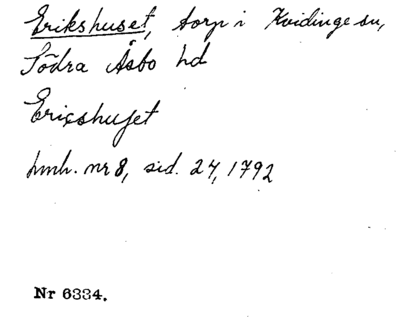 Erikshuset, torp i Kvidinge sn,
Södra Åsbo hd
Ericshuset
hmh. nr 8, sid. 24, 1792
Nr 6334.